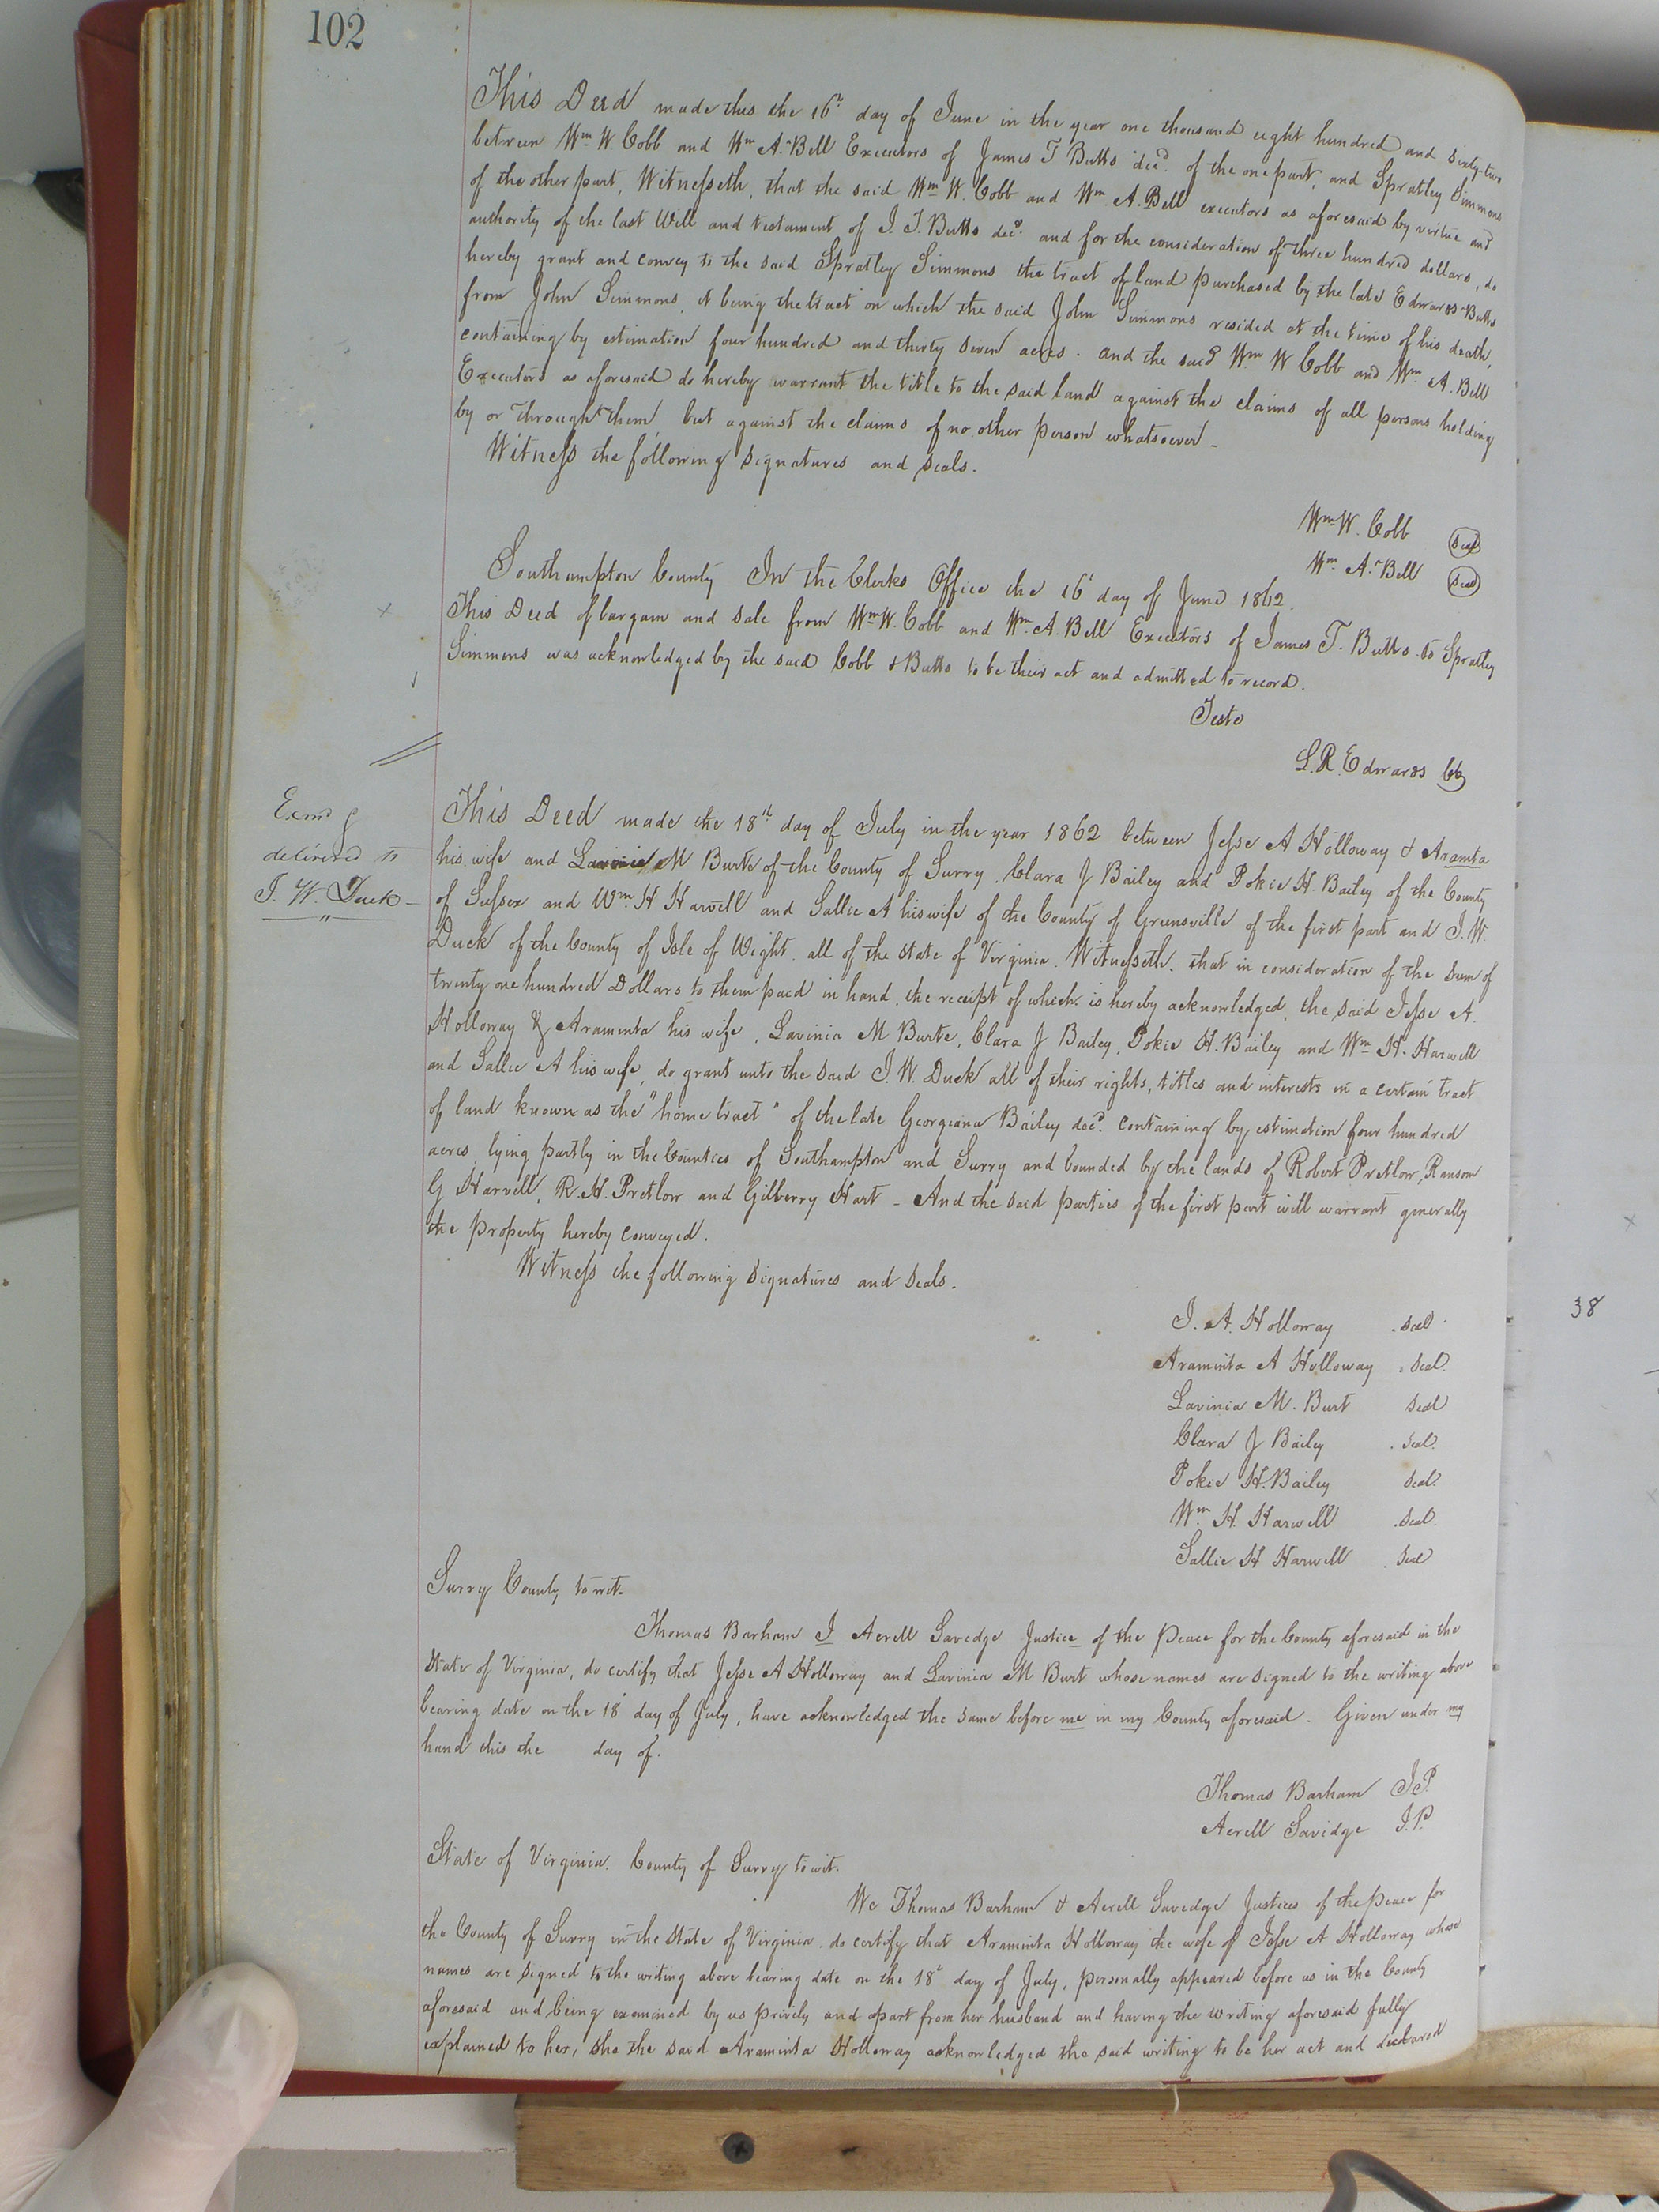 102
This Deed made this the 16th day of June in the year one thousand eight hundred and sixty two
between Wm W. Cobb and Wm A. Bell Executors of James T Butts decd. of the one part, and Spratley Simmons
of the other part, Witnesseth, that the said Wm W. Cobb and Wm A. Bell executors as aforesaid by virtue and
authority of the last Will and testament of J. T. Butts decd. and for the consideration of three hundred dollars, do
hereby grant and convey to the said Spratley Simmons the tract of land purchased by the late Edwards Butts
from John Simmons, it being the tract on which the said John Simmons resided at the time of his death,
containing by estimation four hundred and thirty seven acres. and the said Wm W Cobb and Wm A. Bell
Executors as aforesaid do hereby warrant the title to the said land against the claims of all persons holding
by or through them, but against the claims of no other person whatsoever -
Witness the following signatures and seals.
Wm W. Cobb Seal
Wm A. Bell Seal
Southampton County In the Clerks Office the 16 day of June 1862.
This Deed of bargain and sale from Wm W. Cobb and Wm A. Bell Executors of James T. Butts to Spratley
Simmons was acknowledged by the said Cobb & Butts to be their act and admitted to record.
Teste
L. R. Edwards Clk
Exmd &
delivered to
J. W. Duck -
This Deed made the 18th day of July in the year 1862 between Jesse A Holloway & Araminta
his wife and Lavinia M Burt of the County of Surry. Clara J Bailey and Pokie H. Bailey of the County
of Sussex and Wm H Harwell and Sallie A his wife of the County of Greensville of the first part and J. W.
Duck of the County of Isle of Wight. all of the State of Virginia. Witnesseth. that in consideration of the sum of
twenty one hundred Dollars to them paid in hand, the receipt of which is hereby acknowledged, the said Jesse A.
Holloway & Araminta his wife, Lavinia M Burt, Clara J Bailey, Pokie H. Bailey and Wm H. Harwell
and Sallie A his wife, do grant unto the said J. W. Duck all of their rights, titles and interests in a certain tract
of land known as the "home tract" of the late Georgeana Bailey decd. containing by estimation four hundred
acres, lying partly in the Counties of Southampton and Surry and bounded by the lands of Robert Pretlow, Ransom
G Harvell, R. H. Pretlow and Gilberry Hart - And the said parties of the first part will warrant generally
the property hereby conveyed.
Witness the following signatures and seals.
J. A. Holloway Seal
Araminta A Holloway Seal
Lavinia M. Burt Seal
Clara J Bailey Seal
Pokie H. Bailey Seal
Wm H. Harwell Seal
Sallie H Harwell Seal
38
Surry County to wit.
Thomas Barham I Averll Savedge Justice of the Peace for the County aforesaid in the
State of Virginia, do certify that Jesse A Holloway and Lavinia M Burt whose names are signed to the writing above
bearing date on the 18 day of July, have acknowledged the same before me in my County aforesaid. Given under my
hand this the day of.
Thomas Barham J.P.
Averll Savidge J.P.
State of Virginia. County of Surry to wit.
We Thomas Barham & Averll Savedge Justices of the peace for
the County of Surry in the State of Virginia. do certify that Araminta Holloway the wife of Jesse A Holloway whose
names are signed to the writing above bearing date on the 18th day of July, personally appeared before us in the County
aforesaid and being examined by us privily and apart from her husband and having the writing aforesaid fully
explained to her, she the said Araminta Holloway acknowledged the said writing to be her act and declared